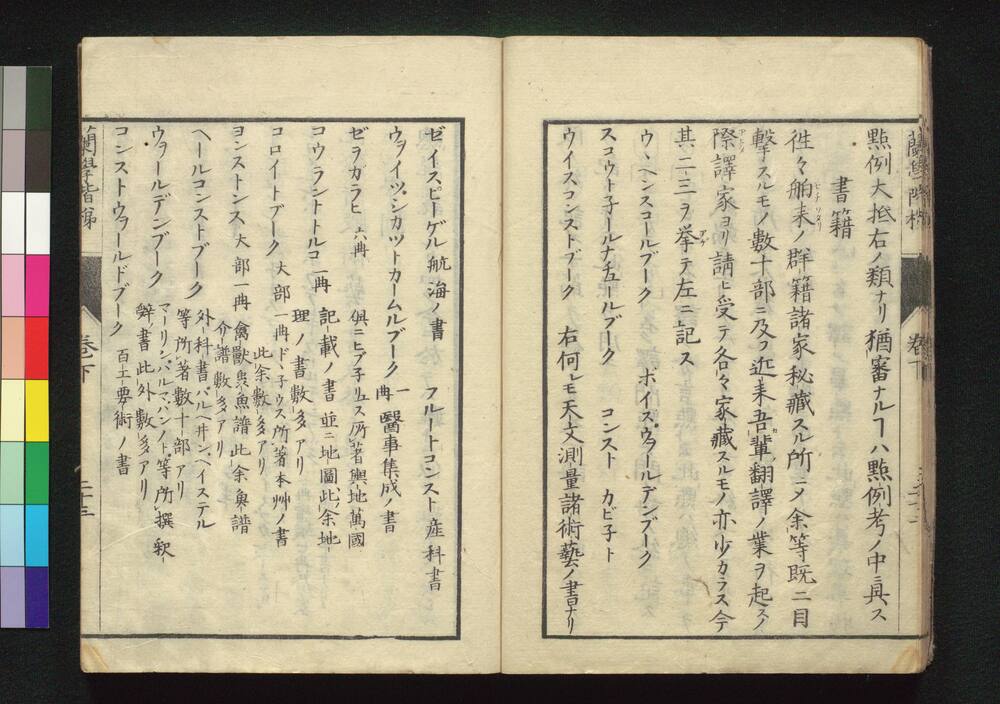 點例大抵右ノ類ナリ猶審ナルヿハ點例考ノ中ニ具ス
書籍
徃々舶来ノ群籍諸家秘藏スル所ニメ余等既ニ目
撃スルモノ數十部ニ及フ近来吾輩翻譯ノ業ヲ起スノ
際譯家ヨリ請ヒ受テ各々家藏スルモノ亦少カラス今
其二三ヲ挙テ左ニ記ス
ウヽヘンスコールブーク ボイス、ウヲルデンブーク
スコウト子ールナチュールブーク コンスト カビ子ト
ウイスコンストブーク 右何レモ天文測量諸術藝ノ書ナリ
蘭學階梯 卷下
ゼイスピーゲル航海ノ書 フルートコンスト産科書
ウヲイツ、シカツトカームルブーク 一冊 醫事集成ノ書
ゼヲガラヒ 六冊 倶ニヒブ子リュス所著輿地萬國
コウラントトルコ 一冊 記載ノ書 並ニ地圖此余地
理ノ書數多アリ
コロイトブーク 大部一冊ドヾ子ウス所著本艸ノ書
此余數多アリ
ヨンストンス 大部一冊禽獣蟲魚譜此余奥譜
介譜數多アリ
ヘールコンストブーク 外科書パルヘ井ン、ヘイステル
等所著數十部アリ
ウヲールデンブーク マーリン、パルマ、ハンノト等所撰釈
辞書此外數多アリ
コンストウヲールドブーク 百工要術ノ書
蘭學階梯 卷下 二十三